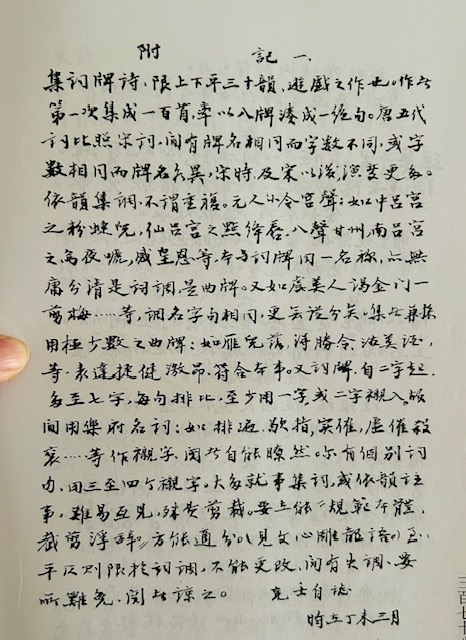 附 記 一、
集詞牌詩，限上下平三十韻，遊戲之作也。作者
第一次集成一百首，率以八牌湊成一絕句。唐五代
詞比照宋詞，間有牌名相同而字數不同，或字
數相同而牌名各異，宋時及宋以後，演變更多。
依韻集調，不謂重複。元人小令宮聲：如中呂宮
之粉蝶兒，仙呂宮之點絳唇、八聲甘州，南呂宮
之烏夜啼，感皇恩等，本與詞牌同一名稱，亦無
庸分清是詞調，是曲牌。又如虞美人謁金門一
剪梅……等，調名字句相同，更云混分矣。集者兼採
用極少數之曲牌：如雁兒落，得勝令，沽美酒，
等，表達捷健激昂，符合本事。又詞牌，自二字起，
多至七字，每句排比，至少用一字或二字襯入。
間用樂府名詞：如排遍、歇指，實催，虛催，殺
袞……等作襯字，閱者自能瞭然。亦有個別詞
內，用三至四个襯字。大多就事集詞，或依韻註
事，難易互見，殊費剪裁。要之依《規範本體，
裁剪浮辭》，方依通分，《見文心雕龍語》至
平仄則限於詞調，不能更改，間有失調，要
所難免，閱者諒之。 克士自誌
時在丁未三月
三百七十